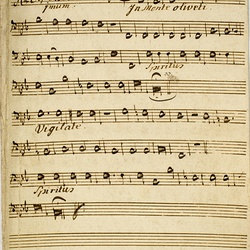 1mum. In Monte oliveti
Spiritus
Vigilate.
Spiritus